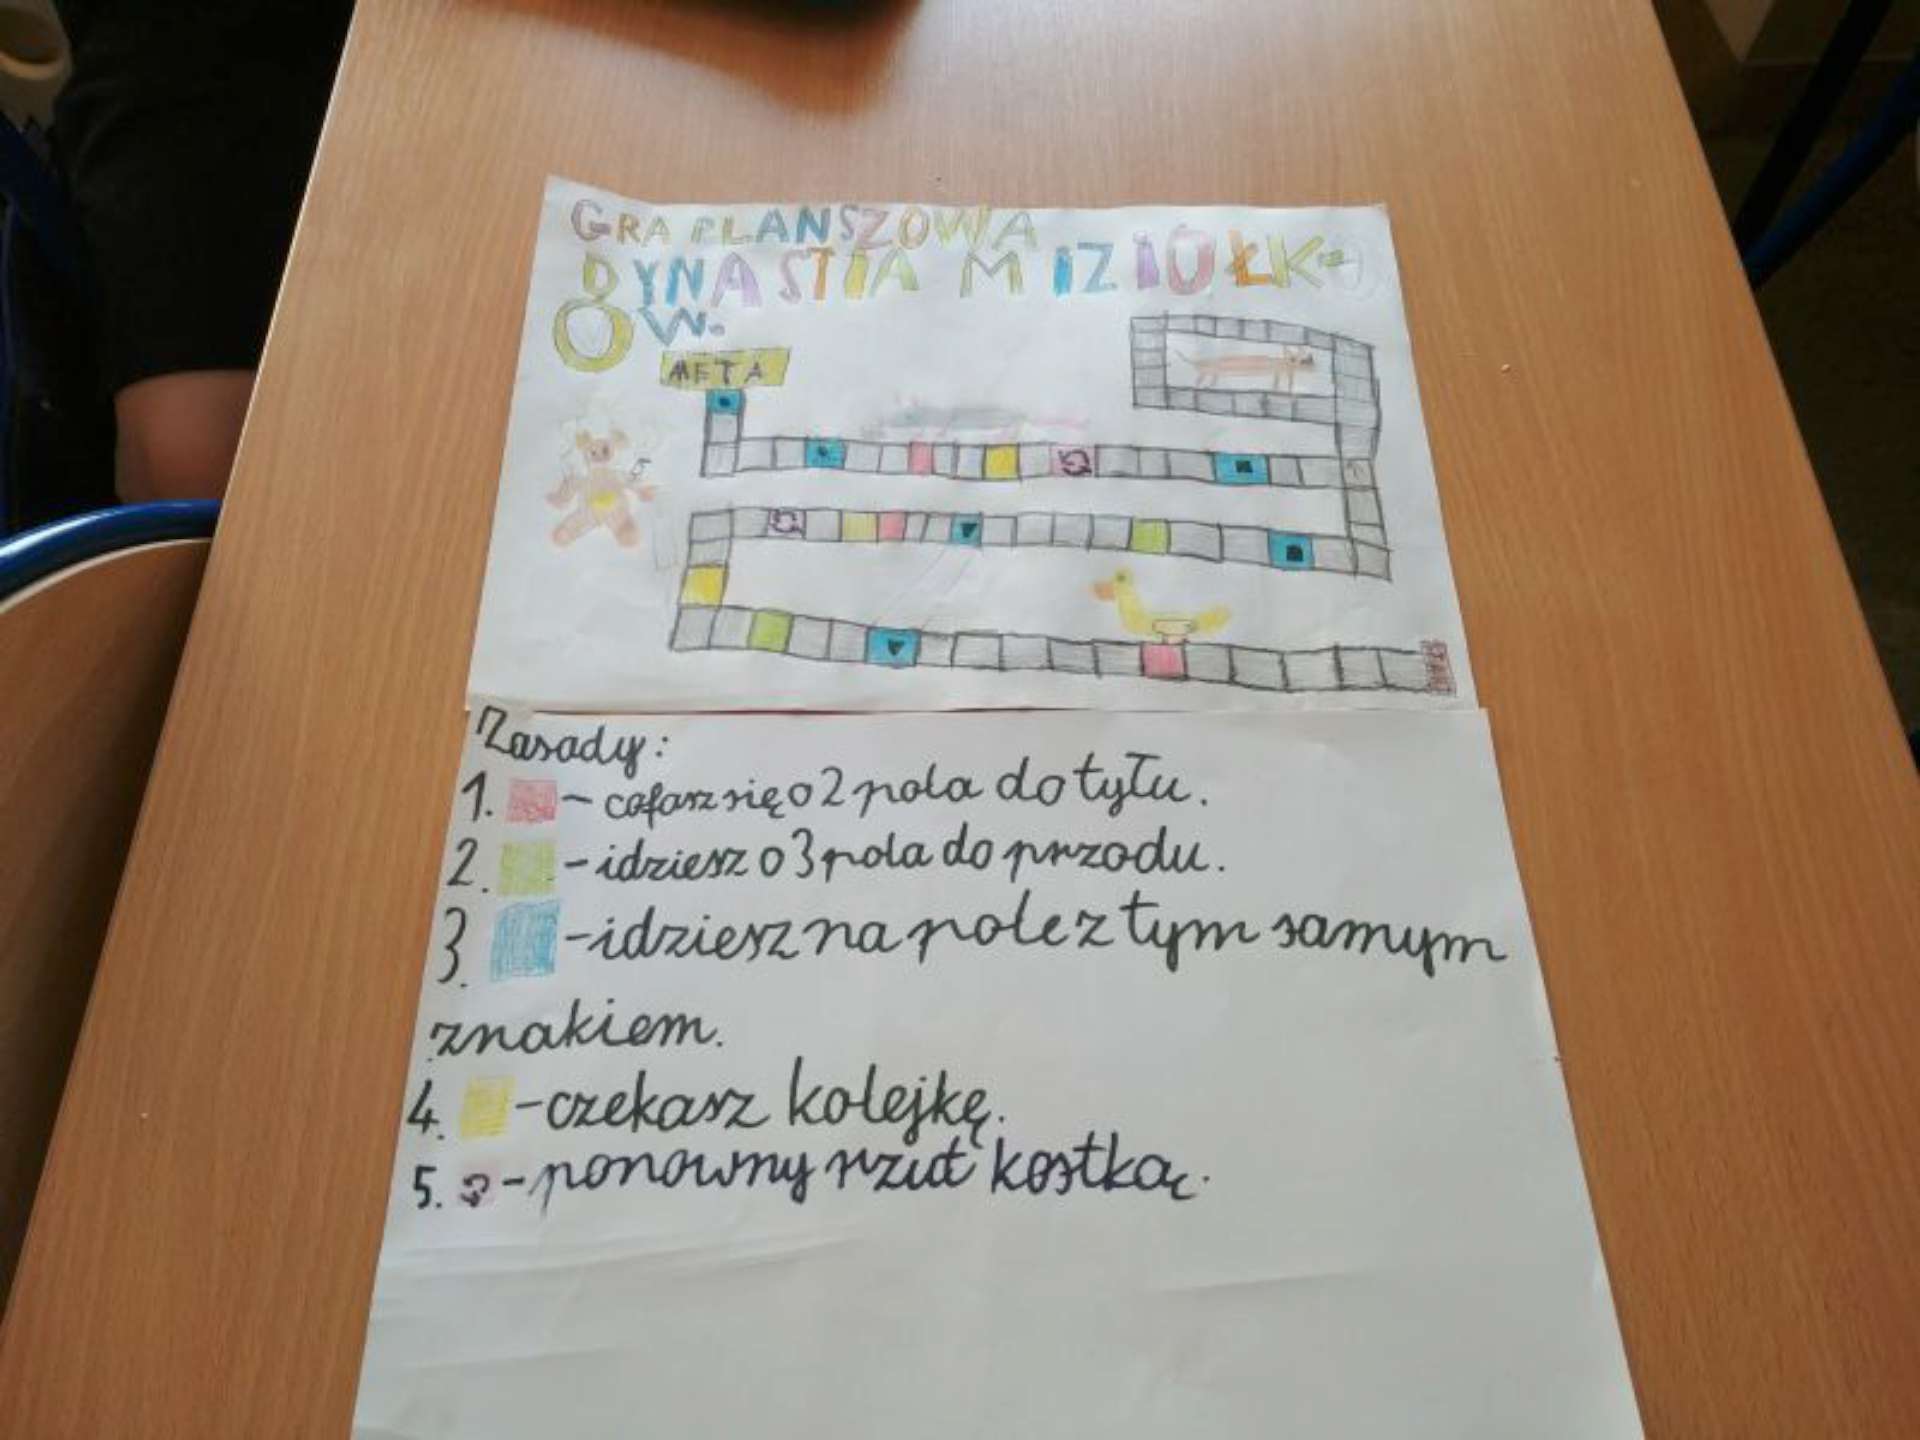 GRA PLANSZOWA
DYNASTIA MIZIOŁK-
ÓW.
META
START
Zasady:
1. - cofasz się o 2 pola do tyłu.
2. - idziesz o 3 pola do przodu.
3. - idziesz na pole z tym samym
znakiem.
4. - czekasz kolejkę.
5. - ponowny rzut kostką.